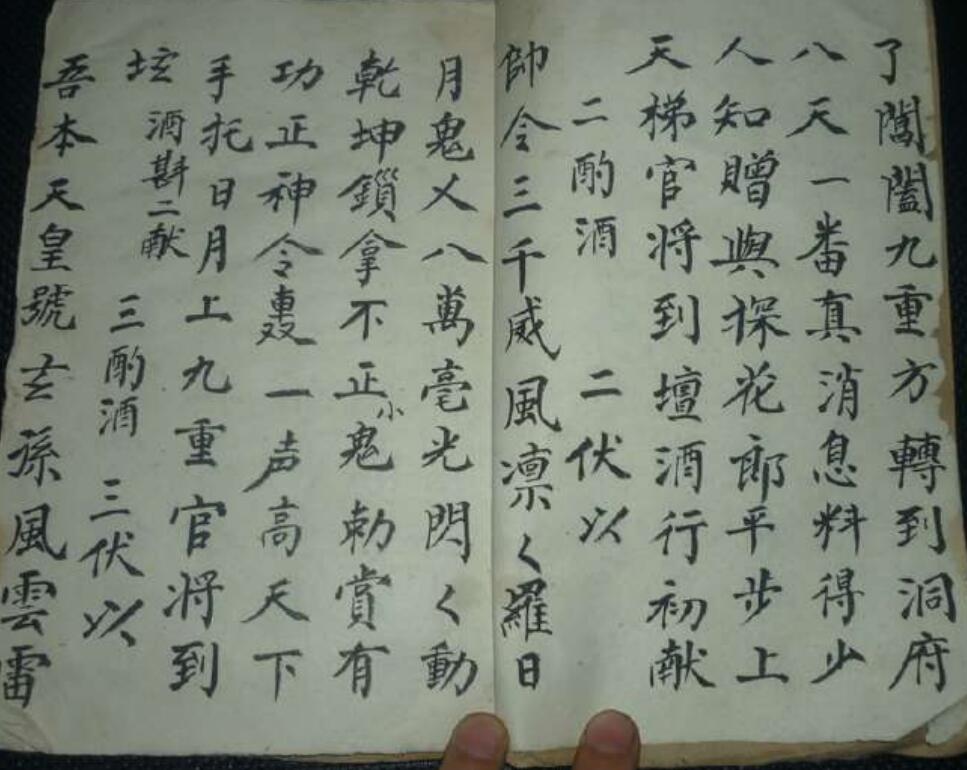 了閶闔九重方轉到洞府
八天一番真消息料得少
人知贈與探花郎平步上
天梯官将到壇酒行初献
二酌酒 二伏以
帥令三千威風凛く羅日
月鬼乂八萬毫光閃く動
乾坤鎖拿不正小鬼勅賞有
功正神令轟一声高天下
手托日月上九重官将到
坛 酒斟二献
三酌酒 三伏以
吾本天皇號玄孫風雲雷